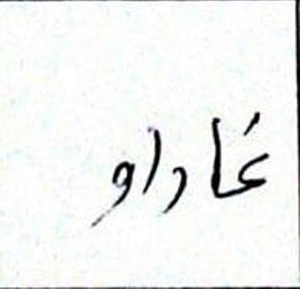 غاداو